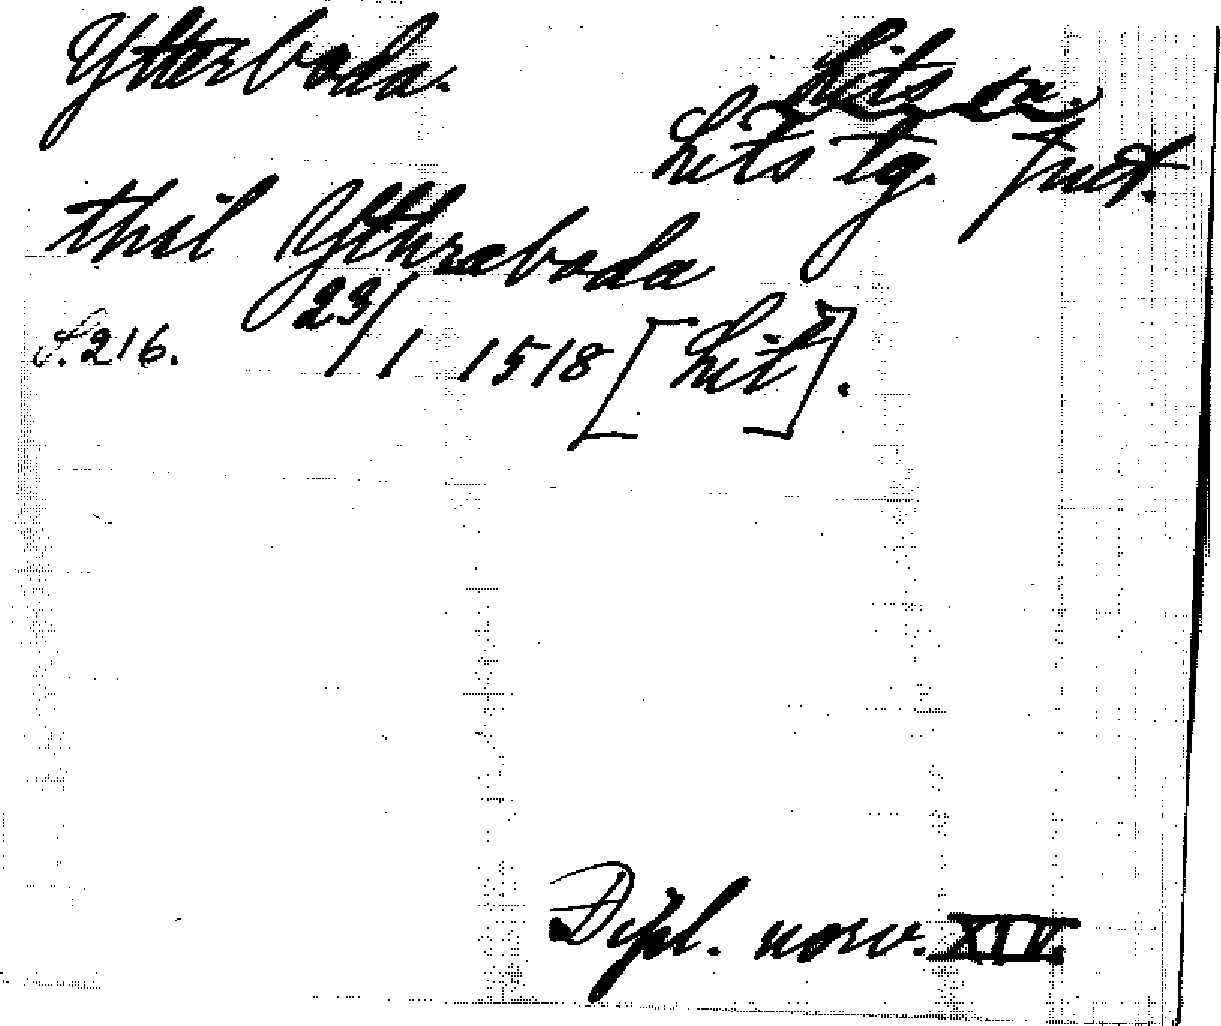 Ytterboda.
Lits sn.
Lits tg. Jmt.
thil Ythraboda
S. 216. 23/1 1518 [Lit].
Dipl. norv. XIV.